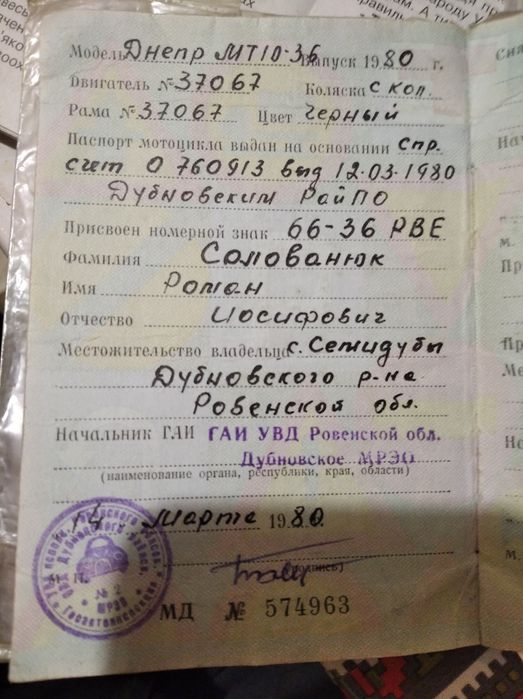 Модель Днепр МТ10-36 Выпуск 1980 г.
Двигатель № 37067 Коляска с кол.
Рама № 37067 Цвет черный
Паспорт мотоцикла выдан на основании спр.
счет 0 760913 выд 12.03.1980
Дубновским РайПО
Присвоен номерной знак 66-36 РВЕ
Фамилия Солованюк
Имя Роман
Отчество Иосифович
Местожительство владельца с. Семидубы
Дубновского р-на
Ровенской обл.
Начальник ГАИ ГАИ УВД Ровенской обл.
Дубновское МРЭО
(наименование органа, республики, края, области)
14 марта 1980.
М. П. (подпись)
№ 2
МРЭО
МД № 574963